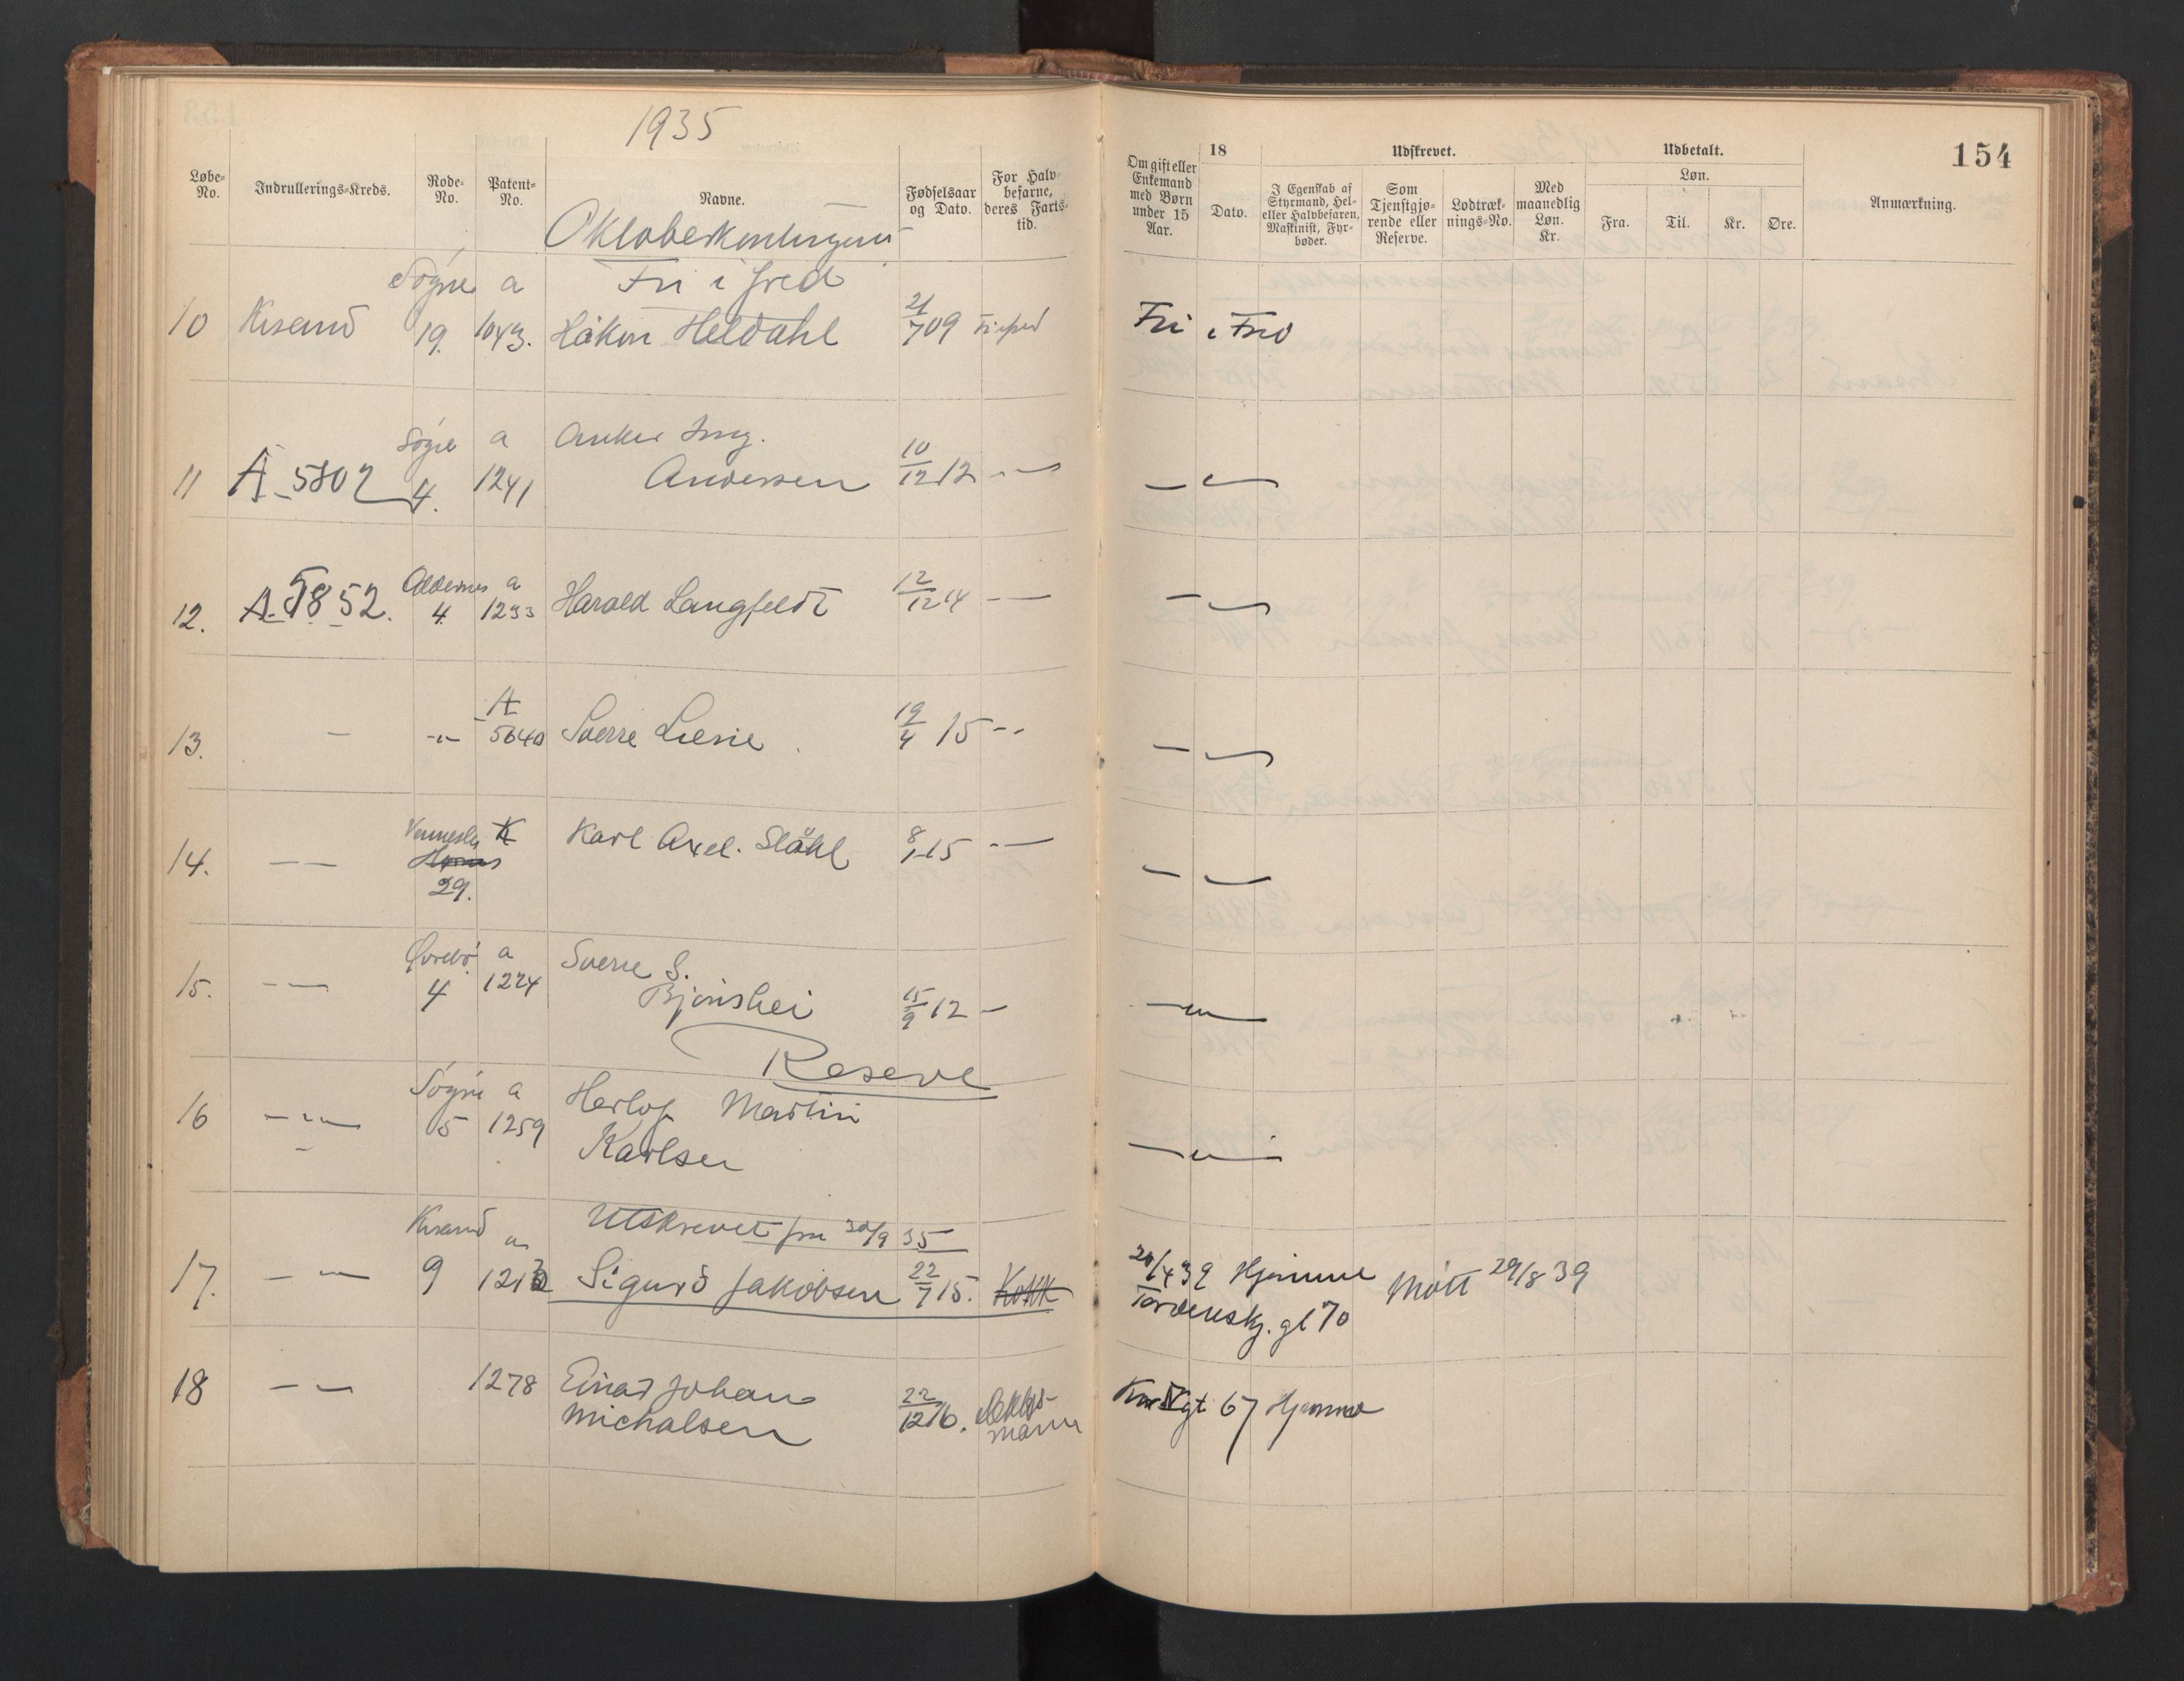 1935
154
Løbe-No. Indrullerings-Kreds. Rode-No. Patent-No. Navne. Fødselsaar og Dato. For Halvbefarne, deres Fartstid.
Om gift eller Enkemand med Børn under 15 Aar. 18 Dato. Udskrevet. I Egenskab af Styrmand, Hel- eller Halvbefaren, Maskinist, Fyrbøder. Som Tjenstgjørende eller Reserve. Lodtræknings-No. Med maanedlig Løn. Kr. Udbetalt. Løn. Fra. Til. Kr. Øre. Anmærkning.
Oktoberkontingent
Søgne a Fri i fred
10 Krsand 19. 1043. Håkon Heldahl 21/7 09 Fri i fred Fri i Fred
Søgne a Anker Ing.
11 A-5802 4. 1241 Andersen 10/12 12 - - — —
Oddernes a
12. A-5852. 4. 1233 Harald Langfeldt 12/12 14 - - — —
A
13. - -"- 5640 Sverre Lien 19/4 15 - - — —
Vennesla K Karl Axel. Ståhl 8/1 15 - - — —
14. - - 29.
Øvrebø a Sverre S.
15. - - 4 1224 Bjørnshei 15/9 12 - -"-
Reserve
Søgne a Herlof Martin
16 -"- 5 1259 Karlsen -"-
Krsand a Utskrevet fra 30/9 35
17. - - 9 Sigurd Jakobsen 22/7 15. Kokk 20/4 39 Hjemme Møtt 29/8 39
Tordenskj. gt 70
18 - - 1278 Einar Johan 22/12 16. Dekks-
Michalsen mann gt 67 Hjemme